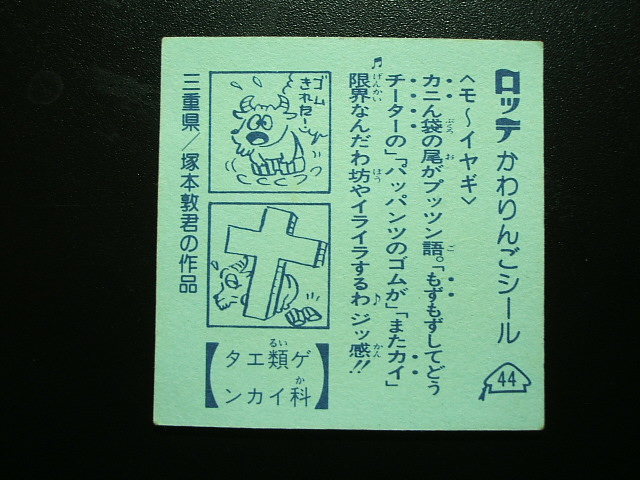 ロッテ かわりんごシール
44
〈モ〜イヤギ〉
カニん袋の尾がプッツン語。「もずもずしてどう
チーターの」「バッパンツのゴムが」「またカイ」
♬限界なんだわ坊やイライラするわ♪ジッ感!!
ゴム
きれた〜
ゲカ類エタ
科イカン
三重県/塚本敦君の作品